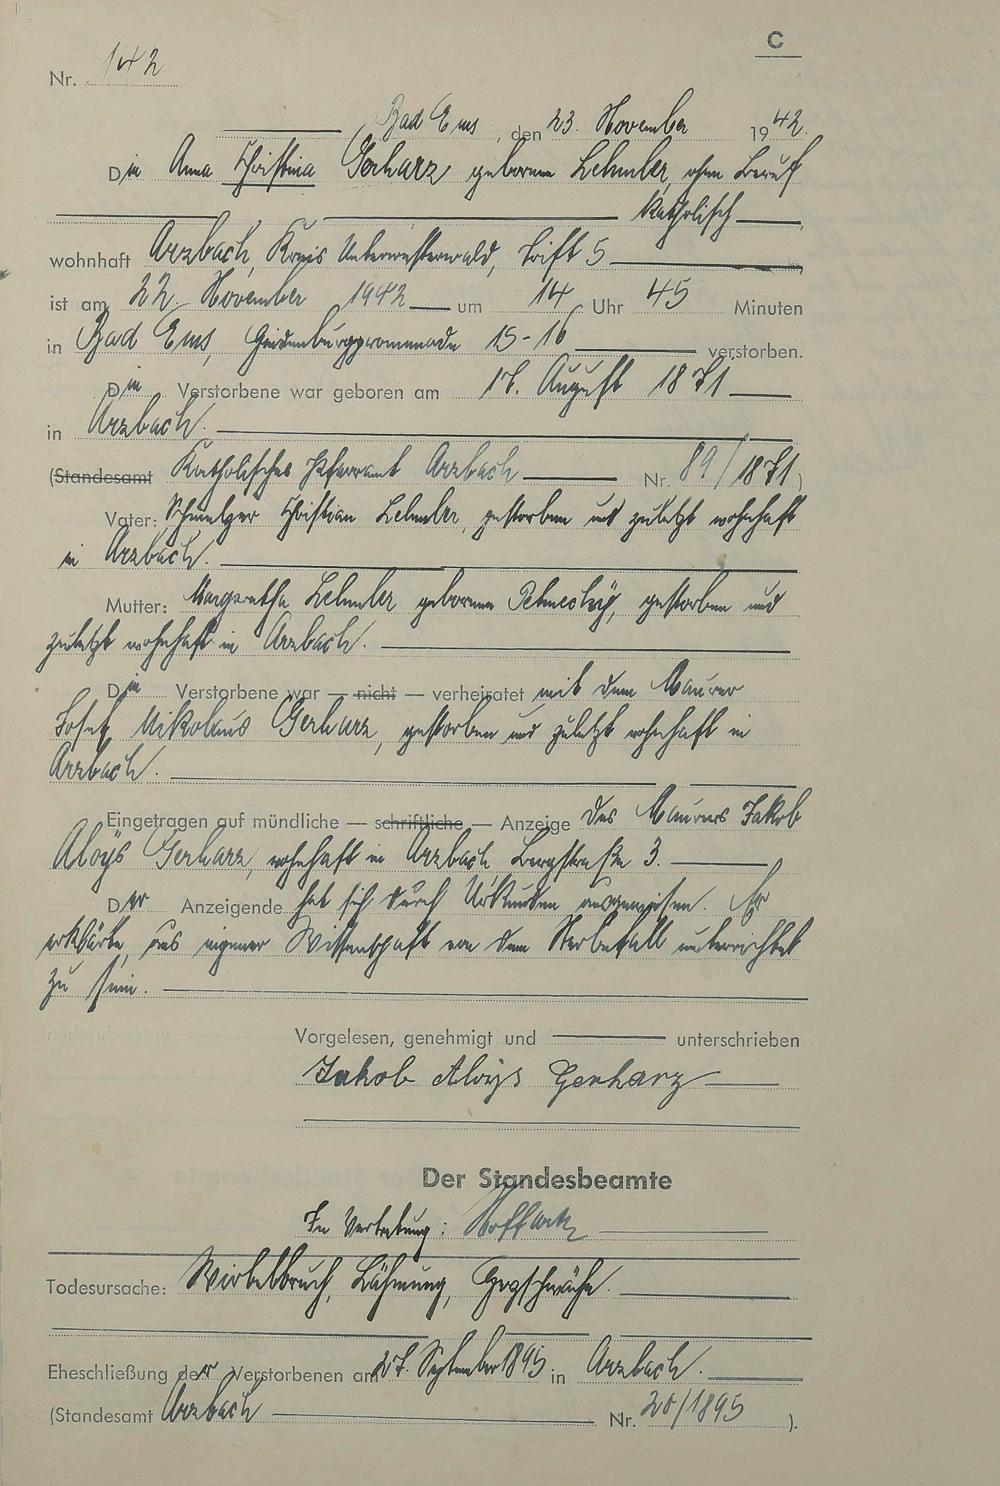 C
Nr. 142
Bad Ems, den 23. November 1942.
Die Anna Christina Gerharz geborene Lehmler, ohne Beruf
katholisch
wohnhaft Arzbach, Kreis Unterwesterwald, Trift 5
ist am 22. November 1942 um 14 Uhr 45 Minuten
in Bad Ems, promenade 15-16 verstorben.
Die Verstorbene war geboren am 17. August 1871
in Arzbach.
(Standesamt Katholisches Pfarramt Arzbach Nr. 89/1871)
Vater: Schmelzer Christian Lehmler, gestorben und zuletzt wohnhaft
in Arzbach.
Mutter: Margaretha Lehmler geborene gestorben und
zuletzt wohnhaft in Arzbach.
Die Verstorbene war — nicht — verheiratet mit dem Maurer
Josef Nikolaus Gerharz, gestorben und zuletzt wohnhaft in
Arzbach.
Eingetragen auf mündliche — schriftliche — Anzeige des Maurers Jakob
Aloys Gerharz, wohnhaft in Arzbach, Bergstraße 3.
Der Anzeigende hat sich durch Urkunden ausgewiesen. Er
erklärte, aus eigener Wissenschaft von dem Sterbefall unterrichtet
zu sein.
Vorgelesen, genehmigt und unterschrieben
Jakob Aloys Gerharz
Der Standesbeamte
In Vertretung:
Todesursache: Wirbelbruch, Lähmung, Herzschwäche.
Eheschließung der Verstorbenen am 27. September 1895 in Arzbach.
(Standesamt Arzbach Nr. 20/1895).